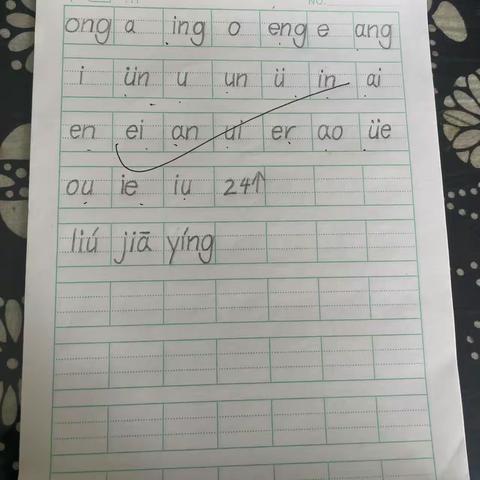 NO.
ong a ing o eng e ang
i ün u un ü in ai
en ei an ui er ao üe
ou ie iu 24个
liú jiā yíng